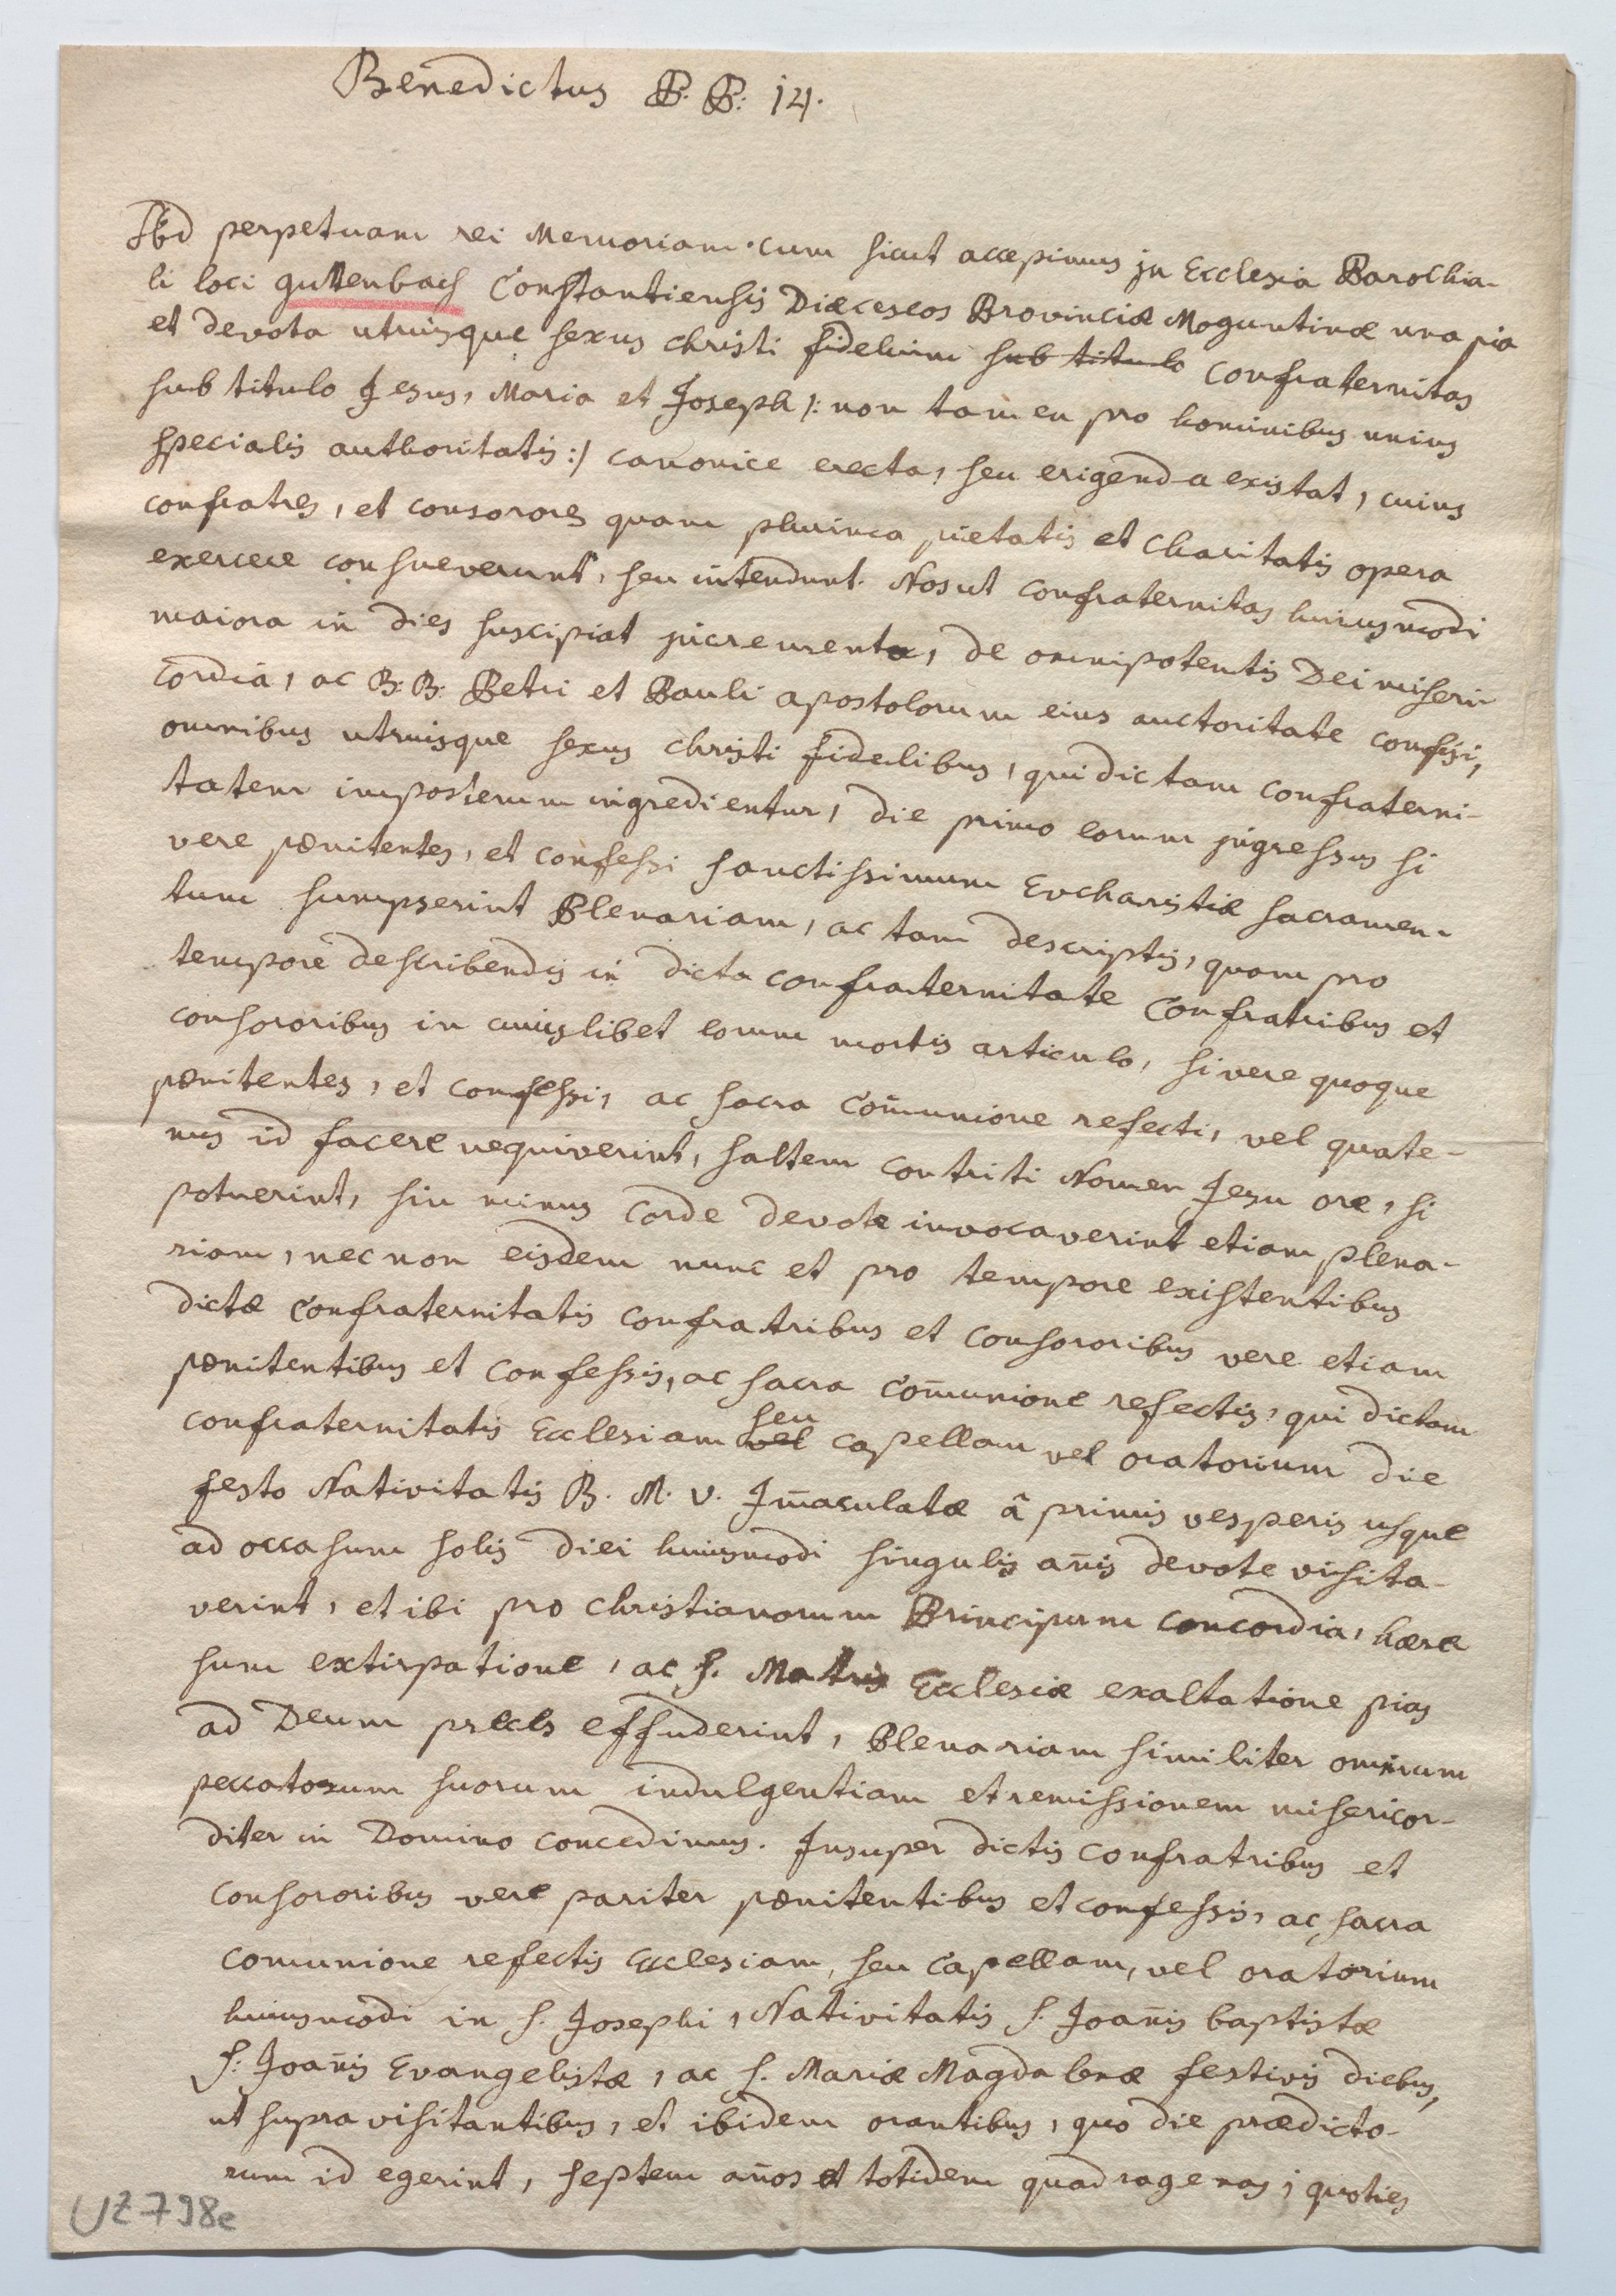 Benedictus P. P. 14.
Ad perpetuam rei Memoriam. cum sicut accepimus in Ecclesia Parochia-
li loci guttenbach Constantiensis Diæceseos Provinciæ Moguntinæ una pia
et devota utriusque sexus christi fidelium sub titulo confraternitas
sub titulo Jesus, Maria et Joseph /: non tamen pro hominibus unius
specialis authoritatis :/ canonice erecta, seu erigenda existat, cuius
confratres, et consorores quam plurima pietatis et charitatis opera
exercere consueverunt, seu intendunt. Nos ut confraternitas huiusmodi
maiora in dies suscipiat incrementa, de omnipotentis Dei miseri-
cordia, ac B: B: Petri et Pauli apostolorum eius auctoritate confisi,
omnibus utriusque sexus christi fidelibus, qui dictam confraterni-
tatem imposterum ingredientur, die primo eorum ingressus si
vere pœnitentes, et confessi sanctissimum Eucharistiæ sacramen-
tum sumpserint Plenariam, ac tam descriptis, quam pro
tempore describendis in dicta confraternitate confratribus et
consororibus in cuiuslibet eorum mortis articulo, si vere quoque
pœnitentes, et confessi, ac sacra com̄unione refecti, vel quate-
nus id facere nequiverint, saltem contriti Nomen Jesu ore, si
potuerint, sin minus corde devote invocaverint etiam plena-
riam, nec non eisdem nunc et pro tempore existentibus
dictæ confraternitatis confratribus et consororibus vere etiam
pœnitentibus et confessis, ac sacra com̄unione refectis, qui dictam
confraternitatis Ecclesiam vel seu capellam vel oratorium die
festo Nativitatis B. M. V. Im̄aculatæ â primis vesperis usque
ad occasum solis diei huiusmodi singulis an̄is devote visita-
verint, et ibi pro christianorum Principum concordia, hære
sum extirpatione, ac S. Matris Ecclesiæ exaltatione pias
ad Deum preces effuderint, Plenariam similiter omnium
peccatorum suorum indulgentiam et remissionem misericor-
diter in Domino concedimus. Insuper dictis confratribus et
consororibus vere pariter pœnitentibus et confessis, ac sacra
comunione refectis Ecclesiam, seu capellam, vel oratorium
huiusmodi in S. Josephi, Nativitatis S. Joan̄is baptistæ
S: Joan̄is Evangelistæ, ac S. Mariæ Magdalenæ festivis diebus,
ut supra visitantibus, et ibidem orantibus, quo die prædicto-
rum id egerint, septem an̄os et totidem quadragenas; quoties
UZ 798e